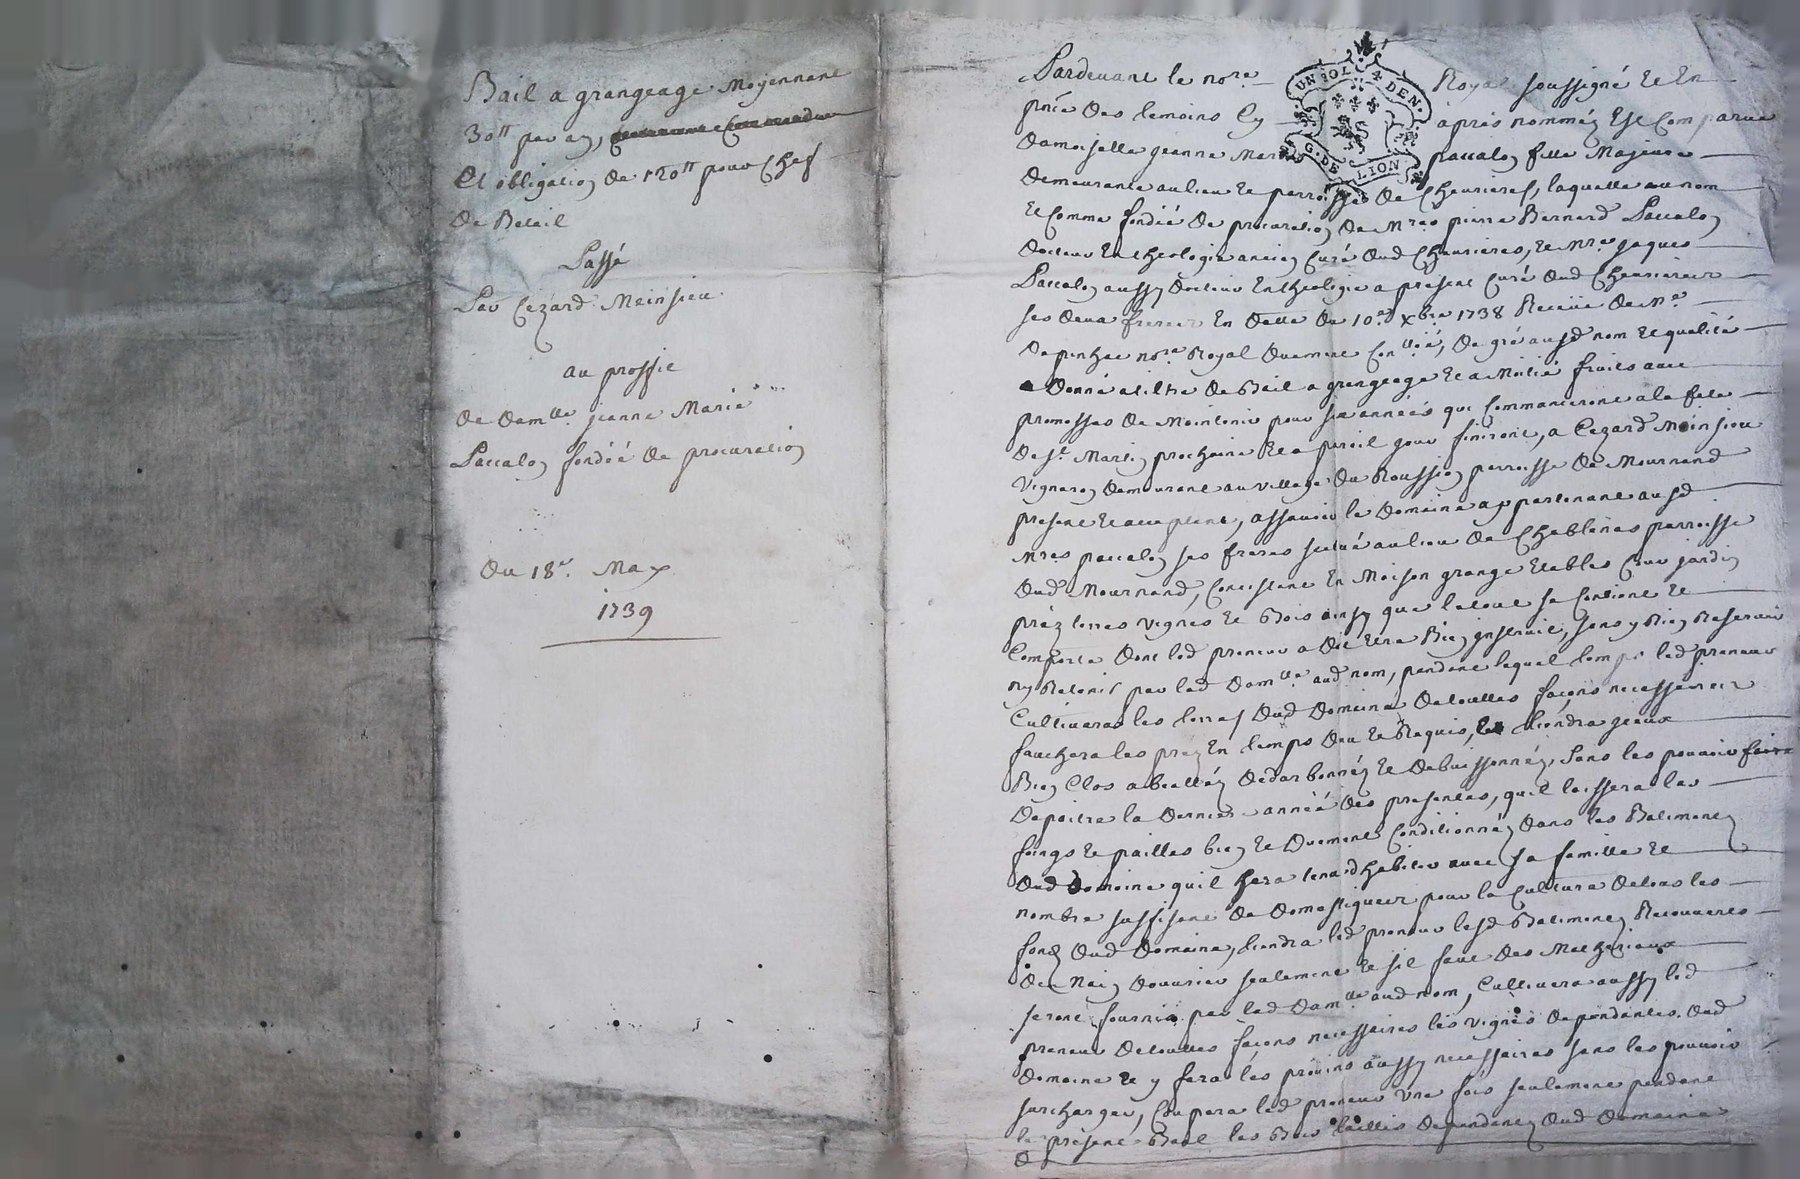 Bail a grangeage Moyennant
30tt par an,
Et obligation de 120tt pour Chef
de Betail
Passé
Par Cezard Meinsieu
au proffit
de damlle. jeanne Marie
Paccalon fondéé de procuration
du 18e. May
1739
Pardevant le nore
UN SOL 4 DEN.
G. DE LION
Royal soussigné Et En
pnce des temoins Cy après nommez Est Comparue
damoiselle jeanne Marie paccalon fille Majeure
demeurante au lieu Et parroisse de Chevrieres, laquelle au nom
Et Comme fondéé de procuration de Mres pierre Bernard Paccalon
docteur En theologie ancien Curé dud Chevrieres, Et Mre jaques
Paccalon aussy docteur En theologie a present Curé dud Chevrieres
ses deux freres En datte du 10e. Xbre 1738 Receüe de Me
nore Royal duement Conllée, de gré ausd nom Et qualité
a donné a titre de Bail a grangeage Et a Moitié fruits avec
promesses de Maintenir pour six années qui Commanceront a la fete
de St. Martin prochaine Et a pareil jour finiront, a Cezard Meinsieu
Vigneron demeurant au village du Roussion parroisse de Mournand
present Et acceptant, assavoir le domaine appartenant ausd
Mres paccalon ses freres scitué au lieu de Chablenas parroisse
dud Mournand, Concistant En Maison grange Etables Cour jardin
préz terres vignes Et Bois ainsy que le tout se Contient Et
Comporte dont led preneur a dit Etre Bien instruit, sans y Rien Reserver
ny Retenir par lad damlle aud nom, pendant lequel temps led preneur
Cultiveras les terres dud domaine de touttes façons necessaires
fauchera les prez En temps deu Et Requis, les tiendra iceux
Bien Clos a bealléz dedarbonnéz Et debuissonnéz, sans les pouvoir faire
depaitre la derniere année des presentes, quil laissera les
foings Et pailles bien Et duement Conditionnéz dans les Batimens
dud domaine quil sera tenu dhabiter avec sa famille Et
nombre suffisant de domestiques pour la Culture de tous les
fonds dud domaine, tiendra led preneur lesd Batimens Recouverts
de Main douvrier seulement Et sil faut des Matheriaux
seront fournis par lad damlle aud nom, Cultivera aussy led
preneur de touttes façons necessaires les vignes dependantes dud
domaine Et y fera les provins aussy necessaires sans les pouvoir
surcharger, Coupera led preneur Une fois seulement pendant
le present Bail les Bois taillis dependans dud domaine